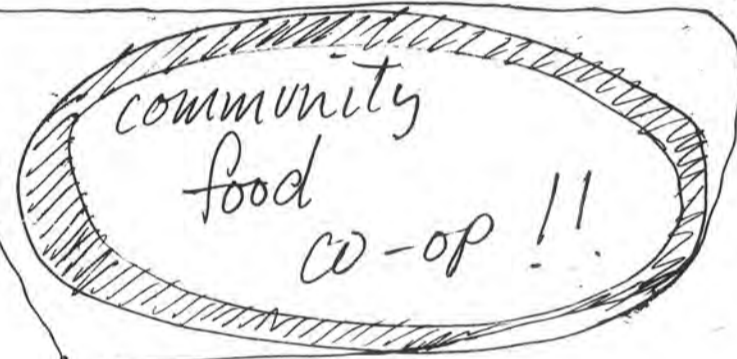 community
food
co-op !!